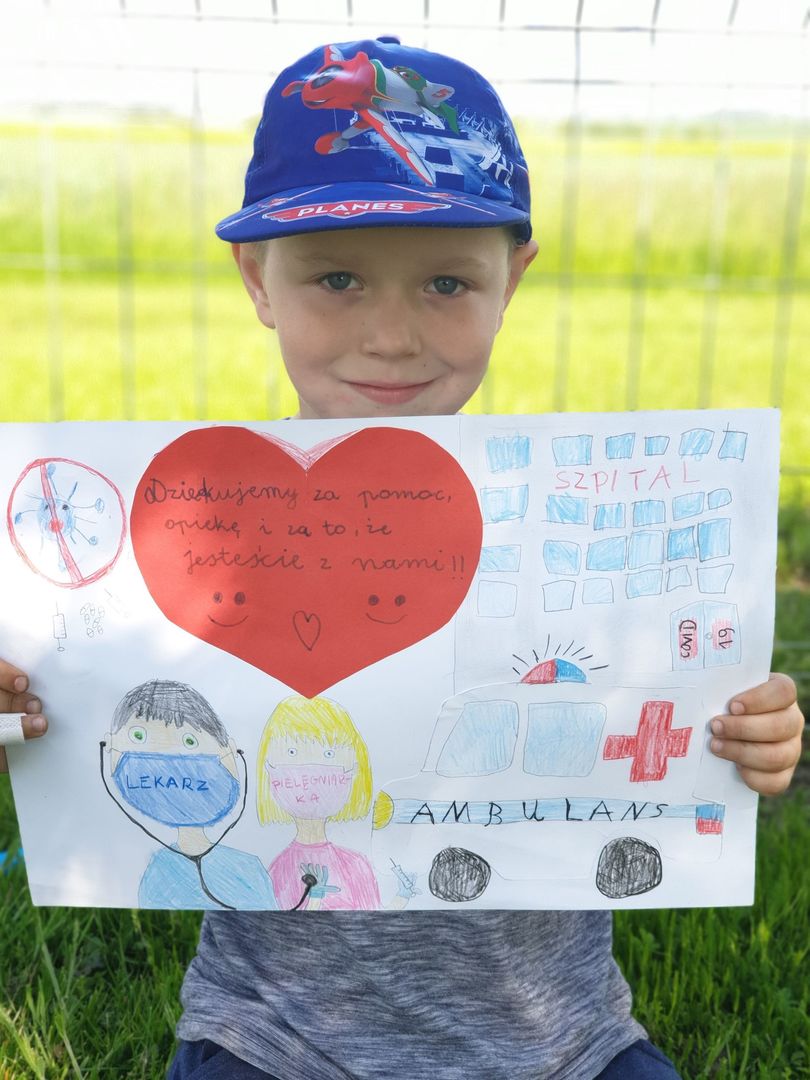 PLANES
Dziękujemy za pomoc,
opiekę i za to, że
jesteście z nami!!
SZPITAL
COVID 19
LEKARZ
PIELĘGNIAR-
KA
AMBULANS